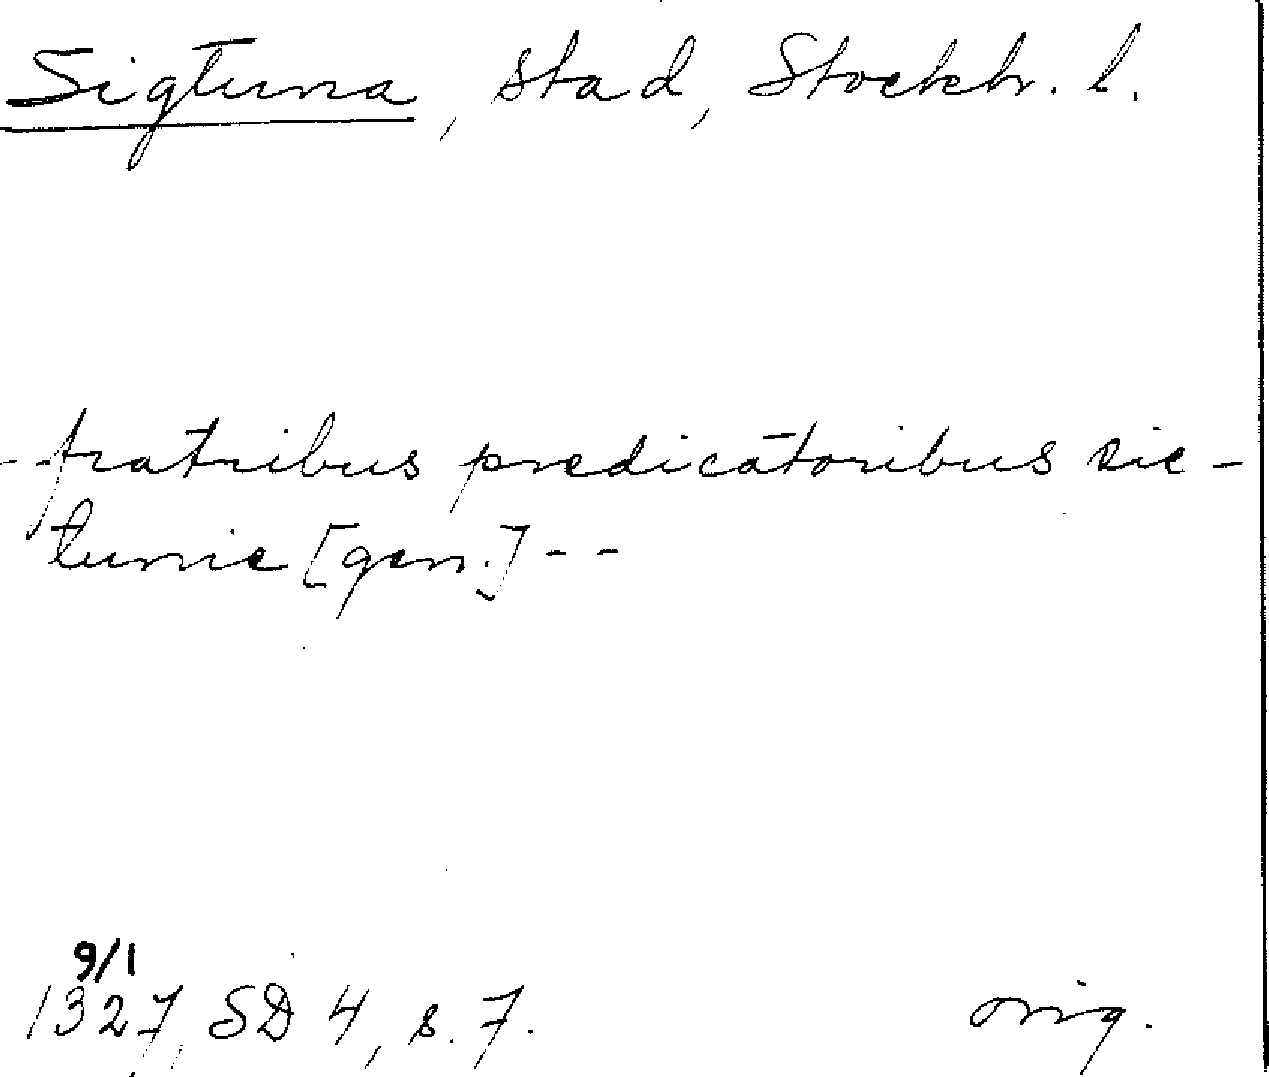 Sigtuna, stad, Stockh. l.
- - fratribus predicatoribus sic-
tunie [gen.] - -
9/1
1327, SD 4, s. 7. orig.